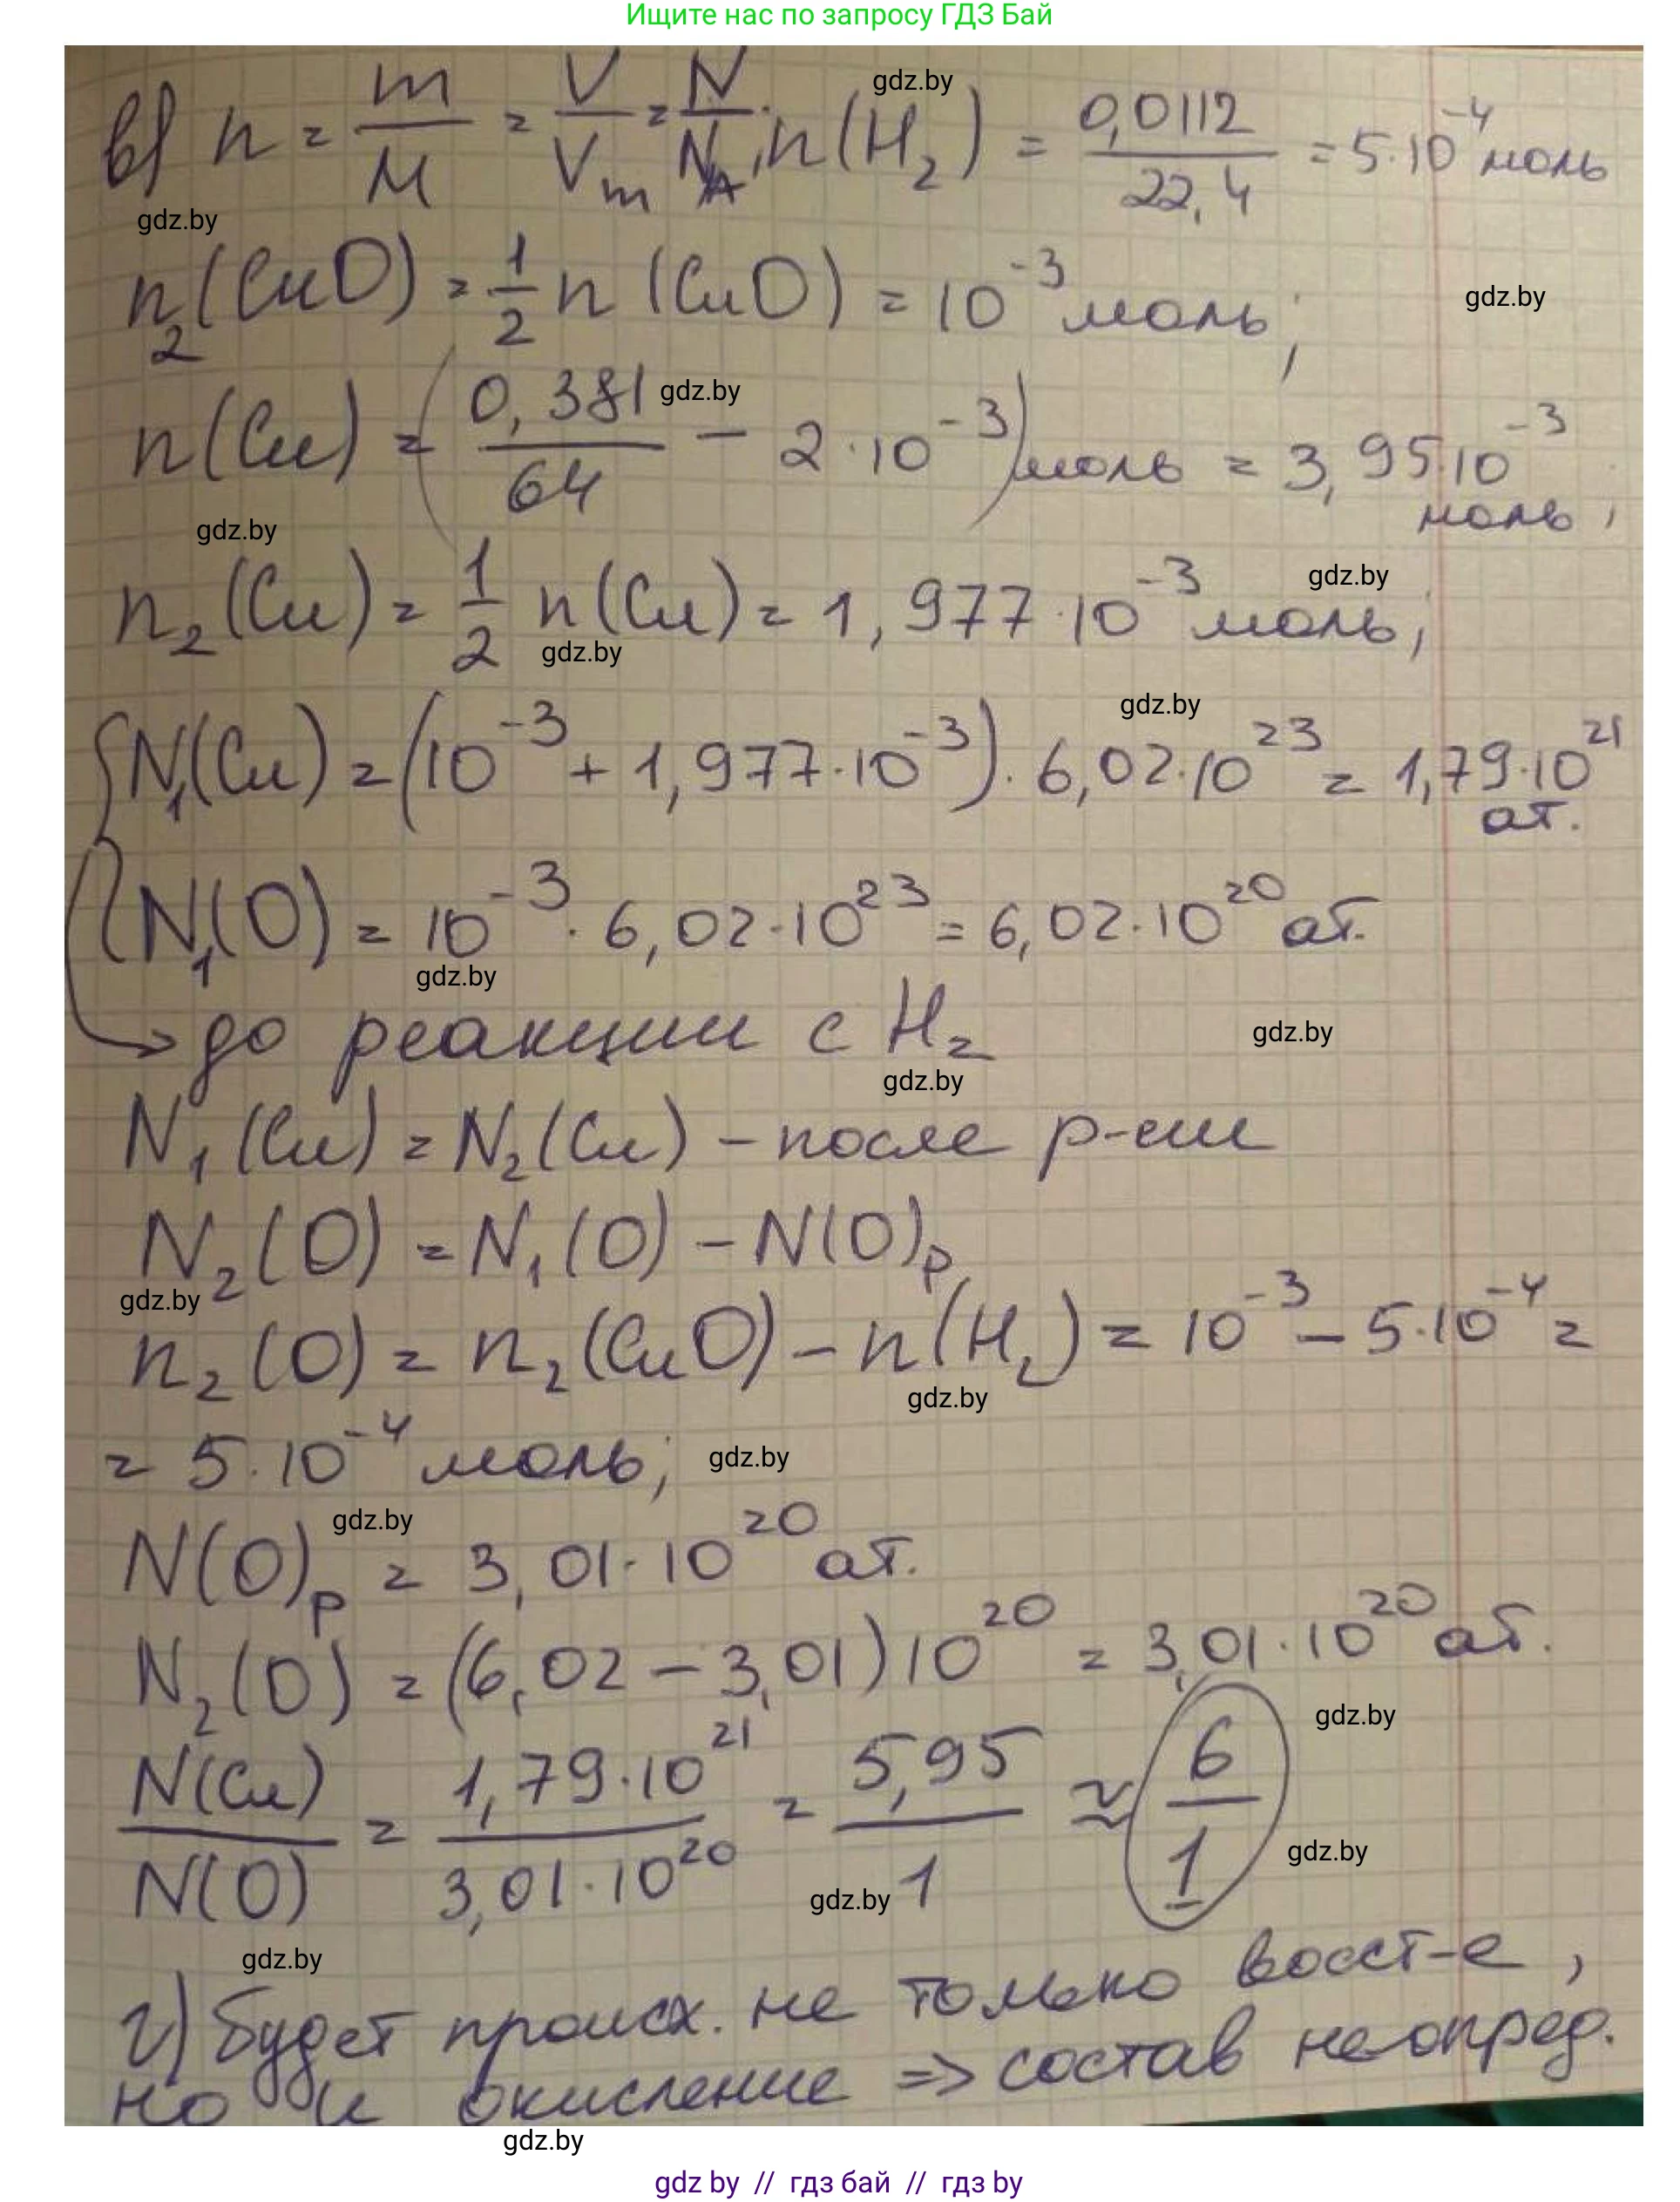 Ищите нас по запросу ГДЗ Бай
в) n = m/M = V/Vm = N/NA; n(H₂) = 0,0112/22,4 = 5·10⁻⁴ моль
gdz.by
gdz.by
n₂(CuO) = 1/2 n (CuO) = 10⁻³ моль;
gdz.by
n(Cu) = (0,381/64 - 2·10⁻³) моль = 3,95·10⁻³ моль;
gdz.by
gdz.by
n₂(Cu) = 1/2 n(Cu) = 1,977·10⁻³ моль;
gdz.by
gdz.by
N₁(Cu) = (10⁻³ + 1,977·10⁻³)·6,02·10²³ = 1,79·10²¹ ат.
gdz.by
N₁(O) = 10⁻³·6,02·10²³ = 6,02·10²⁰ ат.
gdz.by
→ до реакции с H₂
gdz.by
gdz.by
N₁(Cu) = N₂(Cu) – после р-ции
N₂(O) = N₁(O) – N(O)р
gdz.by
n₂(O) = n₂(CuO) – n(H₂) = 10⁻³ – 5·10⁻⁴ =
gdz.by
= 5·10⁻⁴ моль;
gdz.by
gdz.by
N(O)р = 3,01·10²⁰ ат.
N₂(O) = (6,02 – 3,01)10²⁰ = 3,01·10²⁰ ат.
gdz.by
N(Cu)/N(O) = 1,79·10²¹/3,01·10²⁰ = 5,95/1 ≈ 6/1
gdz.by
gdz.by
gdz.by
г) будет происх. не только восст-е,
но и окисление => состав неопред.
gdz.by
gdz by // гдз бай // гдз by